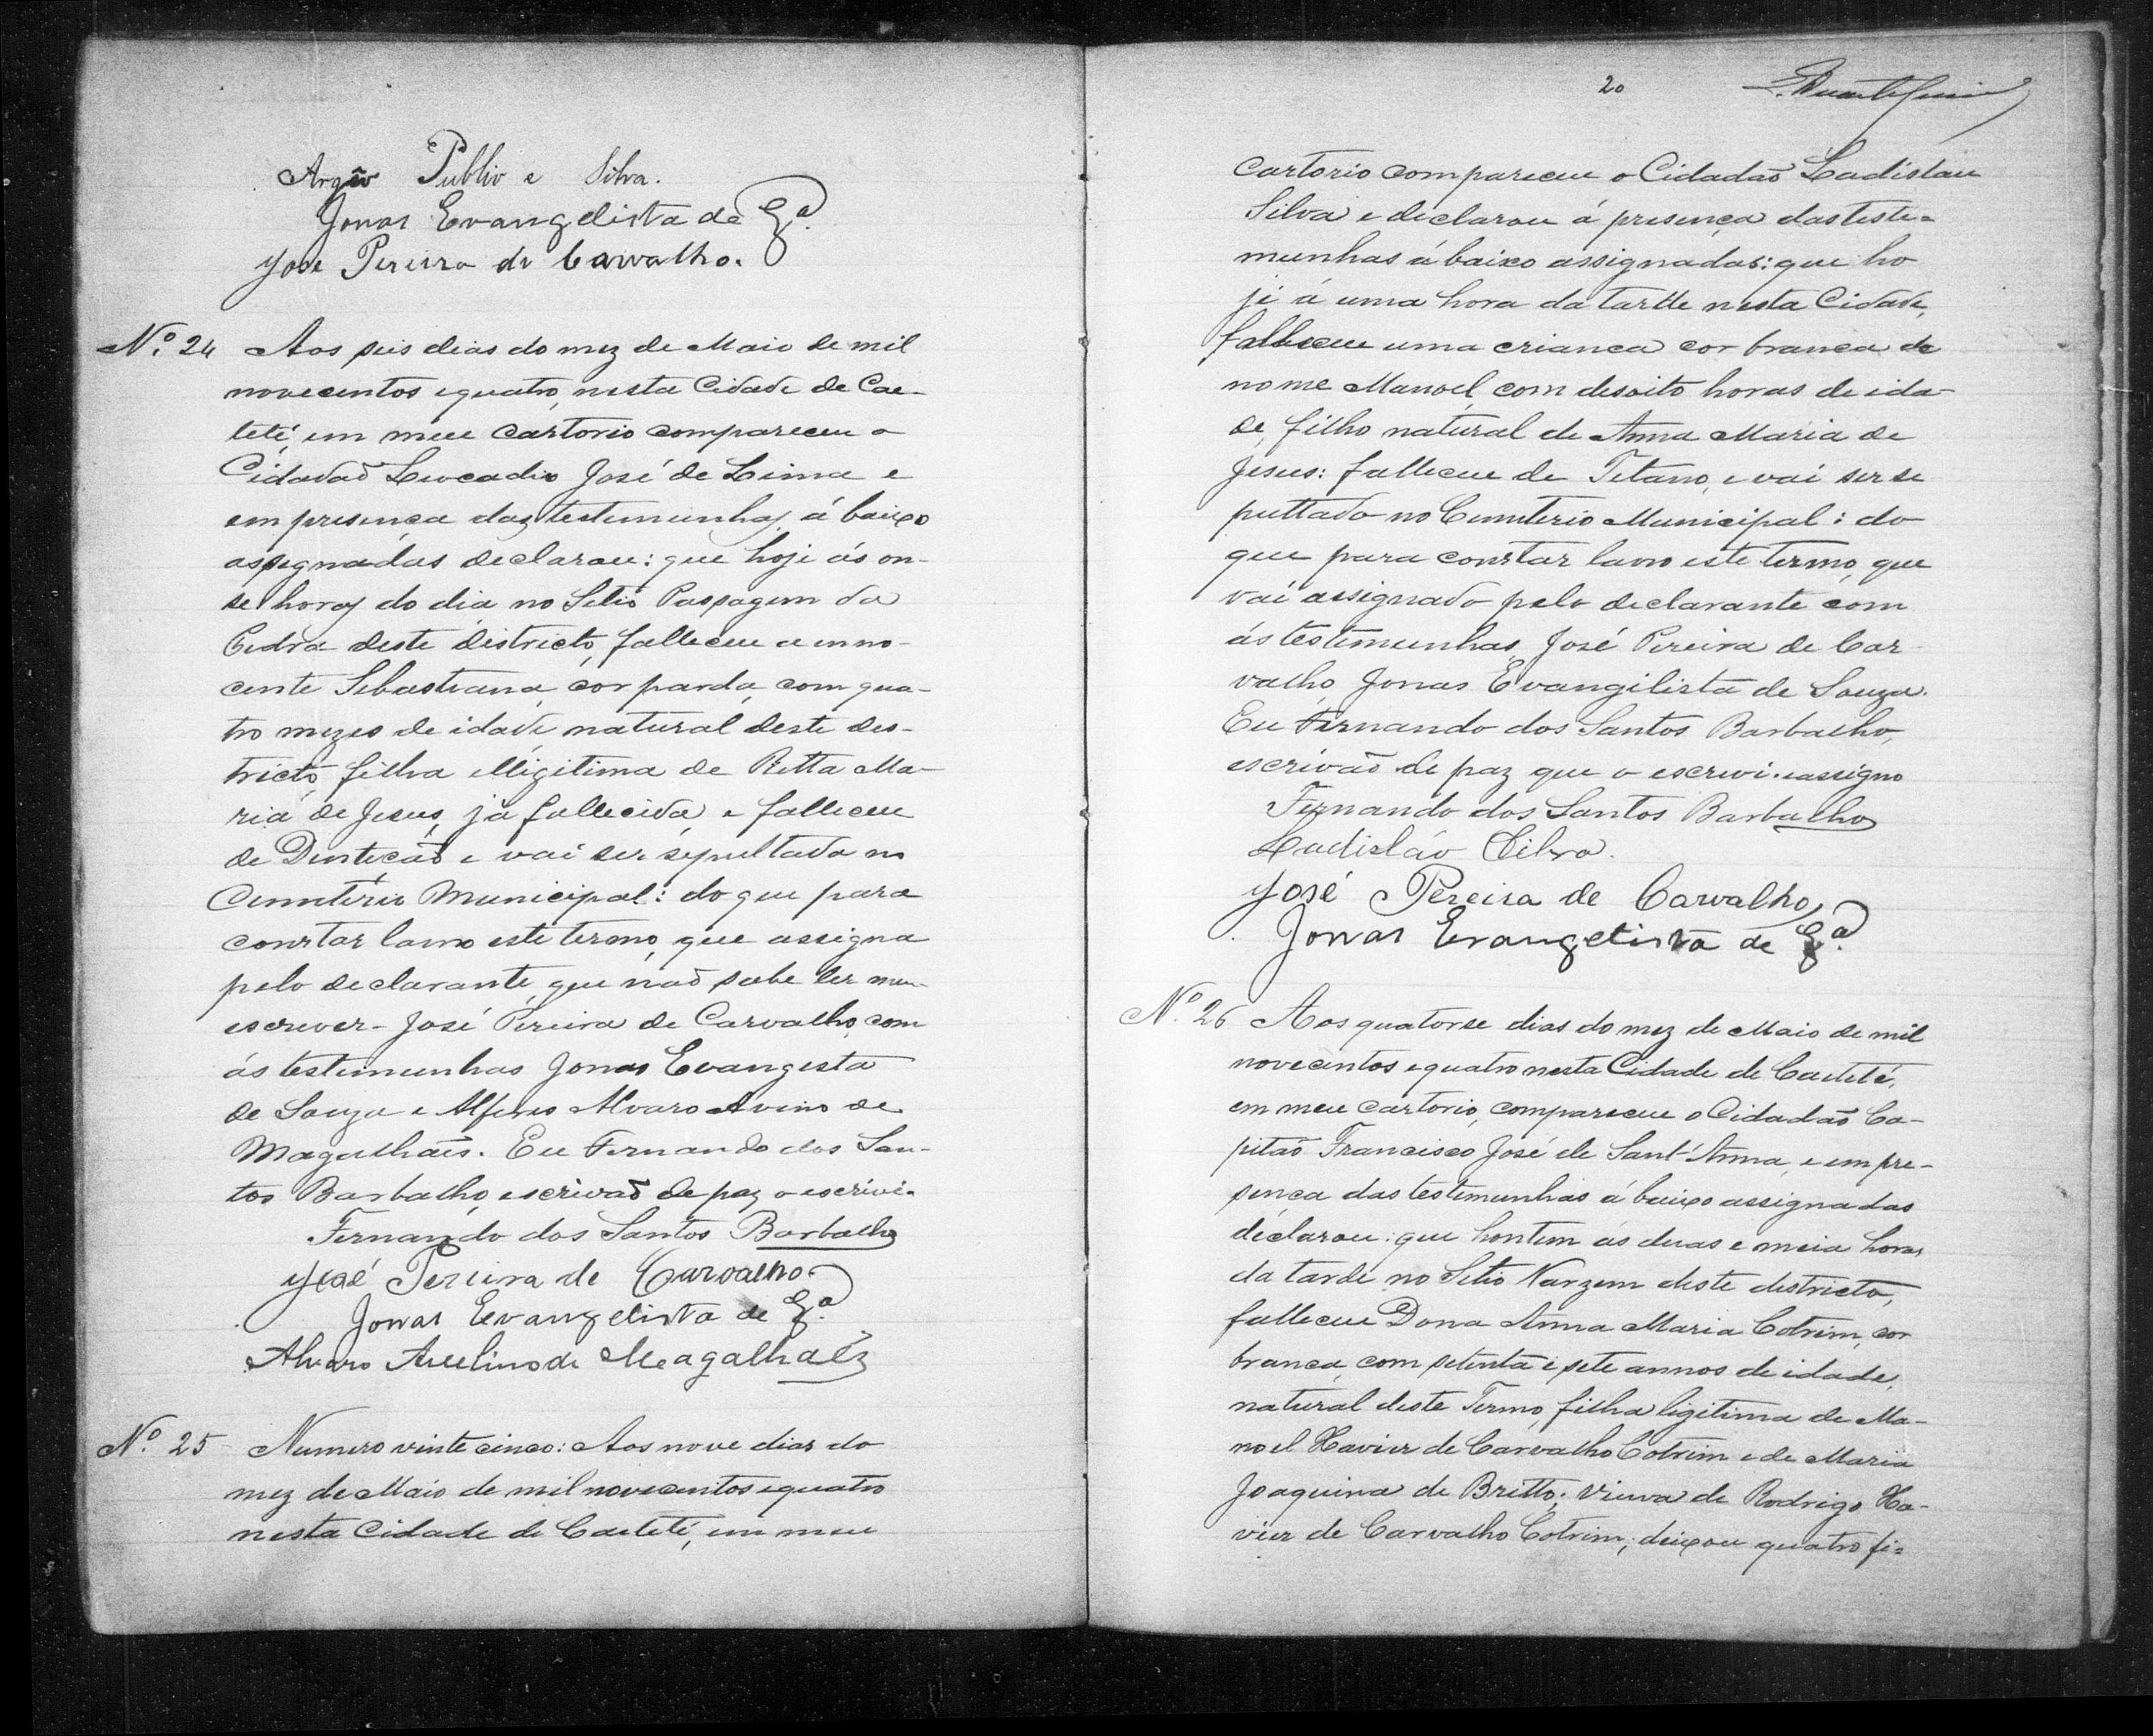 Argêo Publio e Silva.
Jonas Evangelista de Sz.ª
José Pereira de Carvalho.
Nº. 24 Aos seis dias do mez de Maio de mil
novecentos e quatro, nesta Cidade de Cae-
teté, em meu cartorio compareceu o
Cidadaõ Leocadio José de Lima e
em presença das testemunhas á baixo
assegnadas declarou: que hoje ás on-
se horas do dia no Sitio Passagem da
Pedra deste districto, falleceu a inno-
cente Sebastiana, cor parda, com qua-
tro mezes de idade natural deste des-
tricto, filha elligitima de Ritta Ma-
ria de Jesus, já fallecida, e falleceu
de Dentiçaõ e vai ser sepultada no
Cemiterio Municipal: do que para
constar lavro este termo, que assigna
pelo declarante, que naõ sabe ler nem
escrever - José Pereira de Carvalho, com
ás testemunhas Jonas Evangesta
de Souza e Alferes Alvaro Avino de
Magalhaẽs. Eu Fernando dos San-
tos Barbalho, escrivaõ de paz o escrivi.
Fernando dos Santos Barbalho
José Pereira de Carvalho.
Jonas Evangelista de Sz.ª
Alvaro Avelino de Magalhaẽs
Nº. 25 Numero vinte cinco: Aos nove dias do
mez de Maio de mil novecentos e quatro
nesta Cidade de Caeteté, em meu
20
cartorio compareceu o Cidadaõ Ladislau
Silva e declarou á presença das teste=
munhas á baixo assignadas: que ho
je á uma hora da tarde nesta Cidade,
falleceu uma crianca cor branca de
nome Manoel, com desoito horas de ida-
de, filho natural de Anna Maria de
Jesus: falleceu de Tetano, e vai ser se
puttado no Cemiterio Municipal: do
que para constar lavro este termo, que
vai assignado pelo declarante com
ás testemunhas, José Pereira de Car-
valho, Jonas Evangilista de Souza.
Eu Fernando dos Santos Barbalho,
escrivaõ de paz que o escrevi. e assigno
Fernando dos Santos Barbalho
Ladisláo Silva.
José Pereira de Carvalho,
Jonas Evangelista de Sz.ª
Nº. 26 Aos quatorse dias do mez de Maio de mil
novecentos e quatro nesta Cidade de Caeteté,
em meu cartorio, compareceu o Cidadaõ Ca-
pitaõ Francisco José de Sant'Anna, e em pre-
senca das testemunhas á baixo assignadas
declarou: que hontem ás duas e meia horas
da tarde no Sitio Varzem deste districto,
falleceu Dona Anna Maria Cotrim, cor
branca, com setenta e sete annos de idade,
natural deste Termo, filha ligitima de Ma-
noel Xavier de Carvalho Cotrim e de Maria
Joaquina de Britto, viuva de Rodrigo Xa-
vier de Carvalho Cotrim; deixou quatro fi=